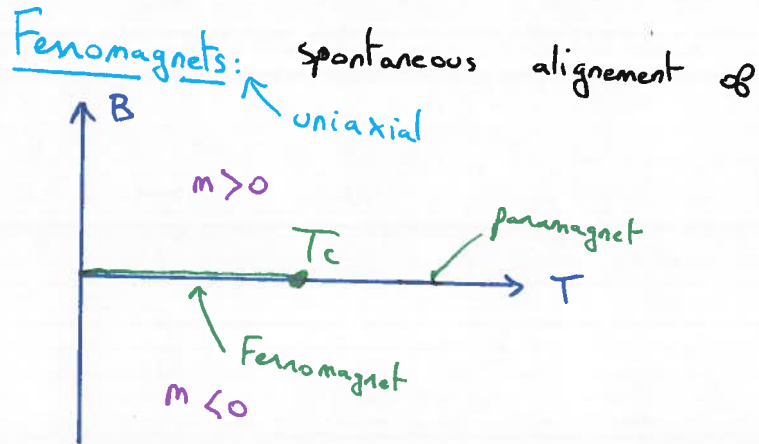 Ferromagnets: spontaneous alignement of
uniaxial
B
m>0
Tc
paramagnet
T
Ferromagnet
m<0